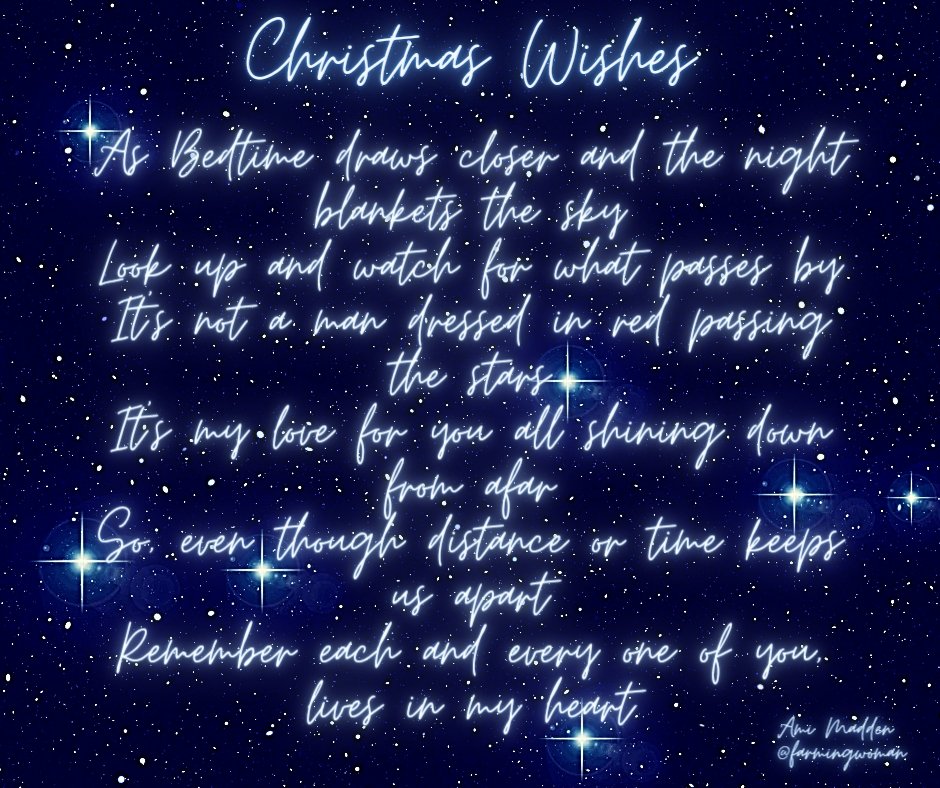 Christmas Wishes
As Bedtime draws closer and the night
blankets the sky
Look up and watch for what passes by
It's not a man dressed in red passing
the stars
It's my love for you all shining down
from afar
So, even though distance or time keeps
us apart
Remember each and every one of you,
lives in my heart.
Ami Madden
@farmingwoman